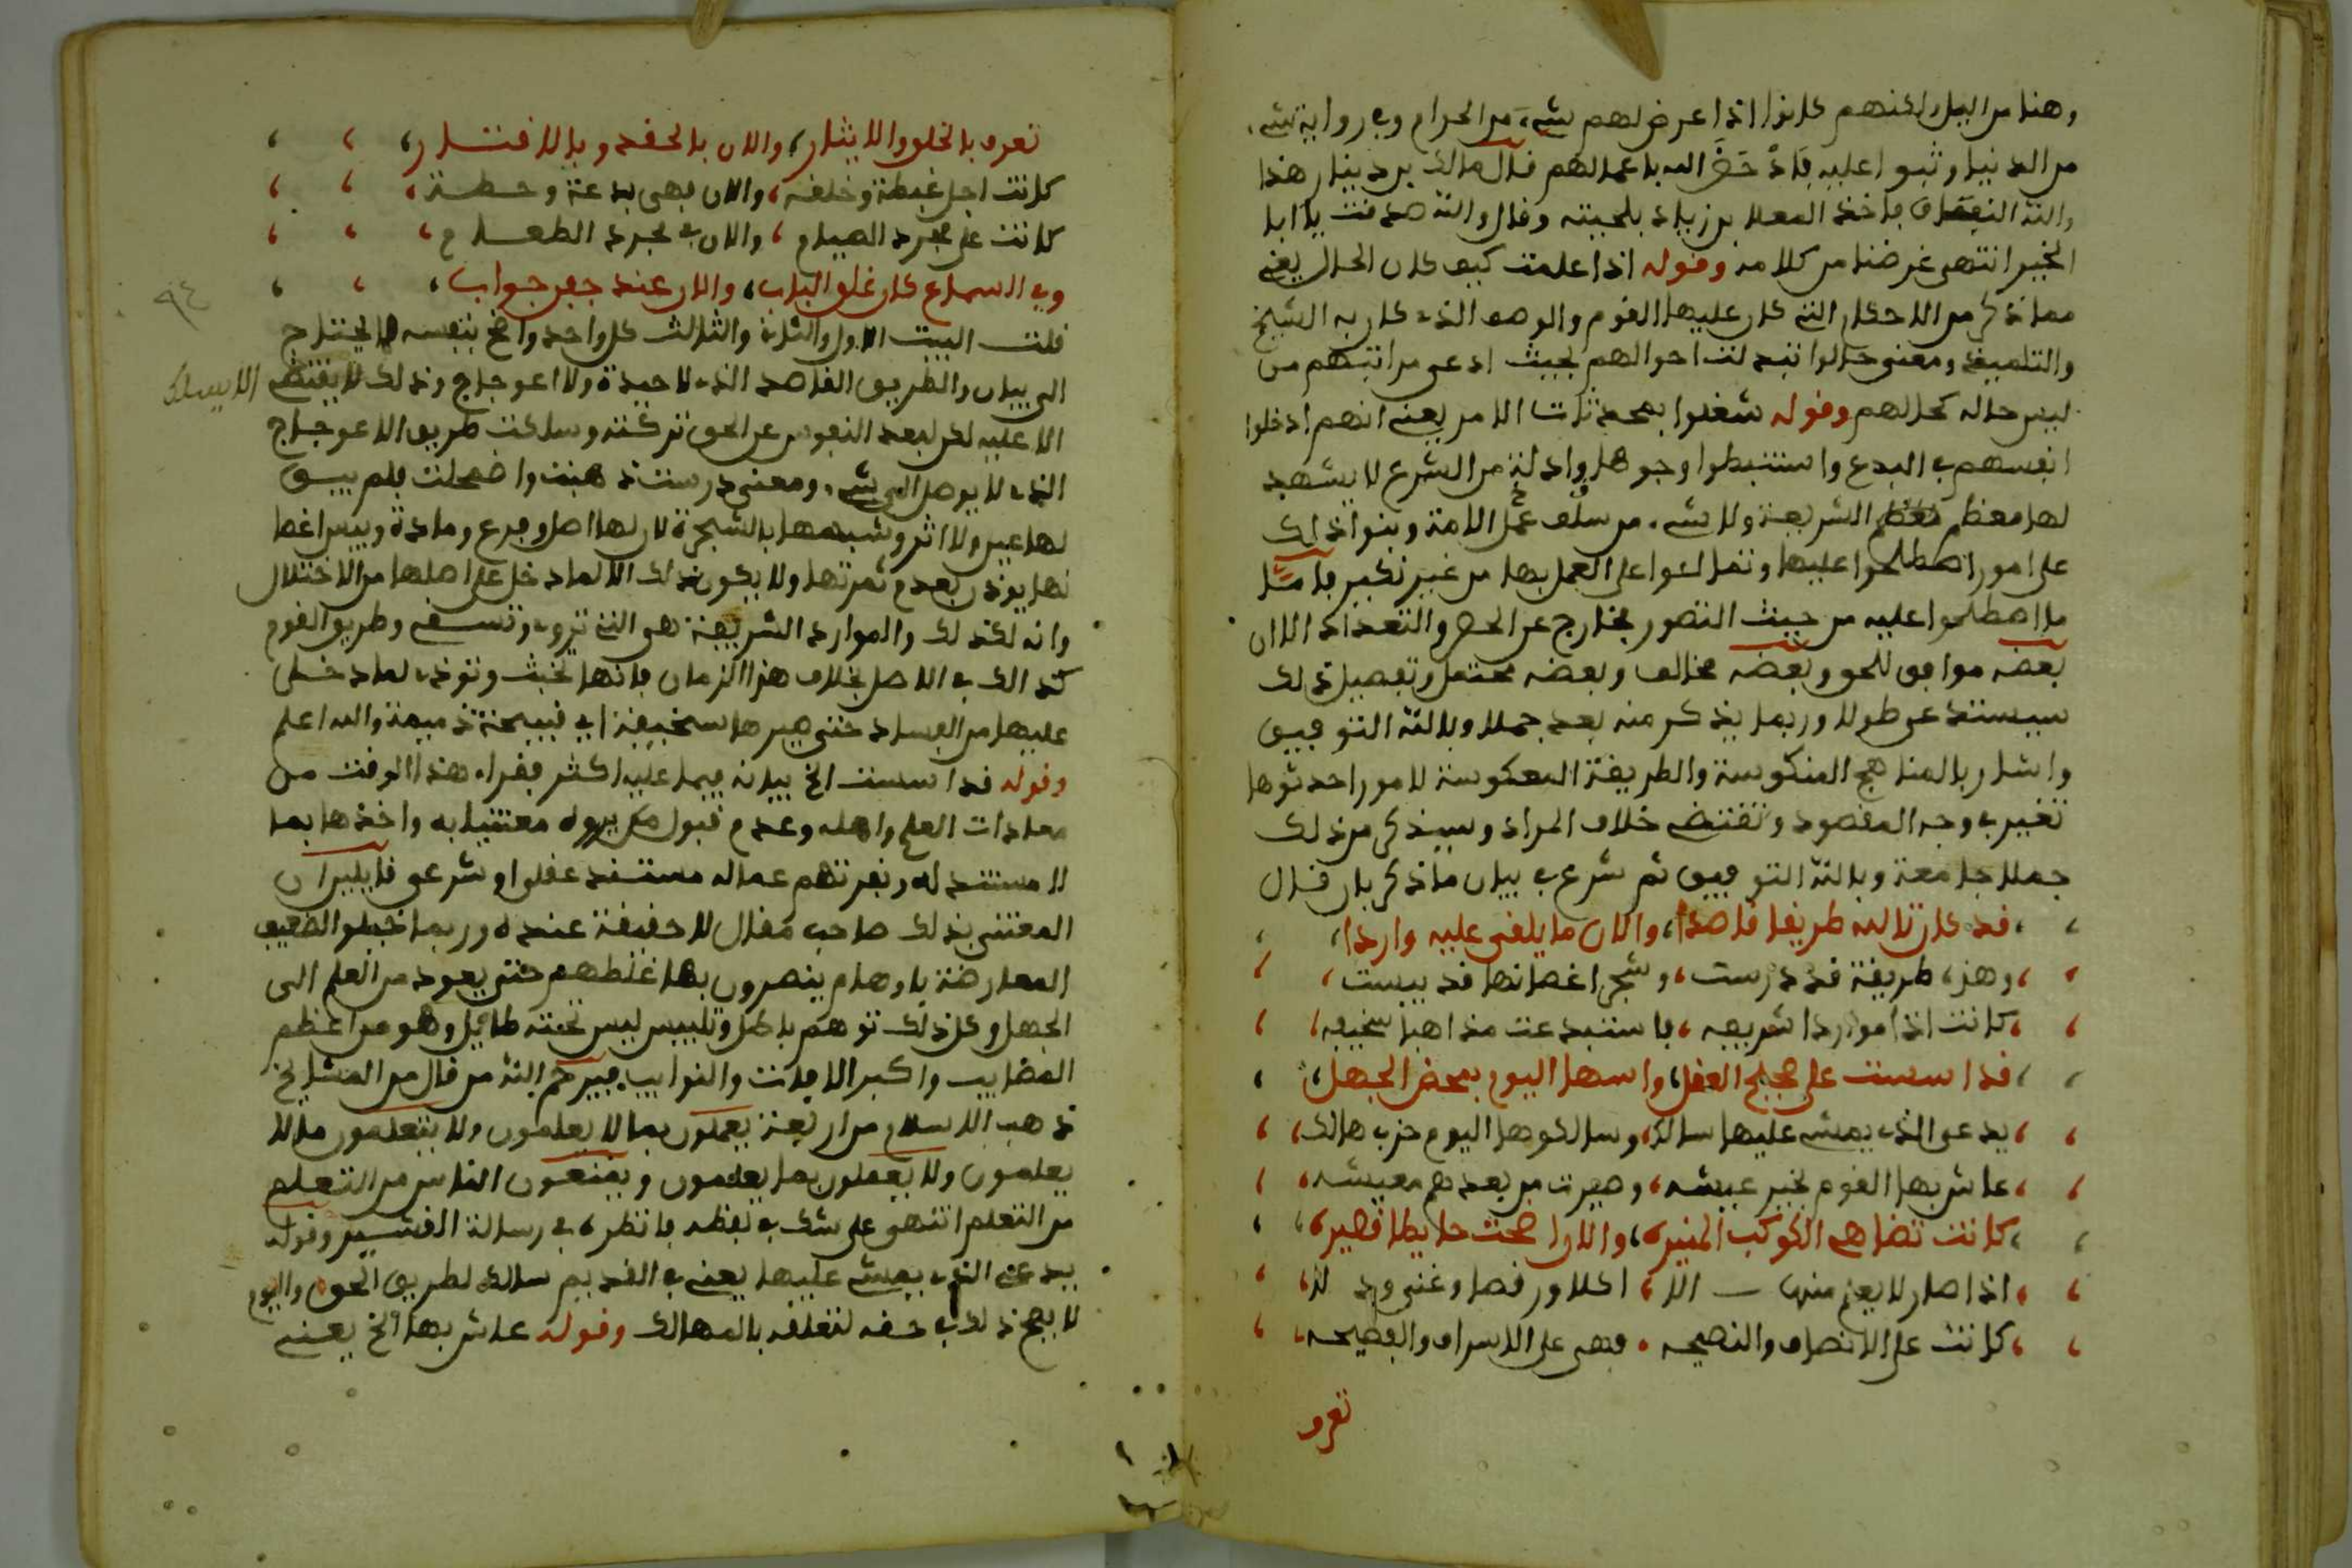 وهنا من اليل لكنهم كانوا اذا عرض لهم شيء من الحرام وفي رواية شيء
من الدنيا وثبوا عليه فاذ حَضَّ الله باعمالهم فقال مالك بن دينار هذا
والله النفاق فاخذ المعلا بن زياد بلحيته وقال والله صدقت يا ابا
الخير انتهى غرضنا من كلامه وقوله اذا علمت كيف كان الحال يعني
مما ذكر من الاحكام التي كان عليها القوم والوصف الذي كان به الشيخ
والتلميذ ومعنى حالوا تبدلت احوالهم بحيث ادعى مراتبهم من
ليس حاله كحالهم وقوله شغلوا بمحدثات الامر يعني انهم ادخلوا
انفسهم في البدع واستنبطوا وجوها وادلة من الشرع لا يشهد
لها معظم الشريعة ولا شيء من سلف الامة وبنوا ذلك
على امور اصطلحوا عليها وتمالئوا على العمل بها من غير نكير فاما
ما اصطلحوا عليه من حيث التصور فخارج عن الحصر والتعداد الا ان
بعضه موافق للحق وبعضه مخالف وبعضه محتمل وتفصيل ذلك
سيستدعي طولا وربما يذكر منه بعد جملا وبالله التوفيق
واشار بالمناهج المنكوسة والطريقة المعكوسة لامور احدثوها
تغير في وجه المقصود وتقتضي خلاف المراد وسيذكر من ذلك
جملا جامعة وبالله التوفيق ثم شرع في بيان ما ذكر بان قال
قد كان تالله طريقا قاصدا، والان ما يلفى عليه واردا،
وهذه طريقة قد درست، وشجر اغصانها قد يبست،
كانت اذا مواردا شريفه، فاستبدعت مذاهبا سخيفه،
قد اسست على صحيح العقل، واسها اليوم بمحض الجهل،
يدعى الذي يمشي عليها سالك، وسالكوها اليوم حزب هالك،
عاش بها القوم بخير عيشه، وصيرت من بعدهم معيشه،
كانت تضاهي الكوكب المنيره، والان اضحت حايطا قصيره،
اذا صار لا يعلم منها الا، اكلا ورقصا وغنى
كانت على الانصاف والنصيحه، فهي على الاسراف والفضيحه،
تعرف
تعرف بالخلق والايثار، والان بالحقد وبالاقتار،
كانت اجل غبطة وخلفه، والان فهي بدعة وحطة،
كانت على مجرد الصيام، والان في مجرد الطعام،
وفي السماع كان غلق الباب، والان عند جفن جواب،
قلت البيت الاول والثاني والثالث كل واحد واضح بنفسه لا يحتاج
الى بيان والطريق القاصد الذي لا حيدة ولا اعوجاج وذلك لا يقتضي
الا يسلك
الا عليه لكن لبعد النفوس عن الحق تركته وسلكت طريق الاعوجاج
الذي لا يوصل الى شيء ومعنى درست ذهبت واضمحلت فلم يبق
لها عين ولا اثر وشبهها بالشجرة لان لها اصل وفرع ومادة ويبس اغصا
نها يوذن بعدم ثمرتها ولا يكون ذلك الا لما دخل على اصلها من الاختلال
وانه لكذلك والموارد الشريفة هي التي تروي وتسقي وطريق القوم
كذلك في الاصل بخلاف هذا الزمان فانها تخبث وتوذي لما دخل
عليها من الفساد حتى صيرها سخيفة اي قبيحة ذميمة والله اعلم
وقوله قد اسست الخ بيانه فيما عليه اكثر فقراء هذا الوقت من
معادات العلم واهله وعدم قبول من يرونه معتنيا به واخذها بما
لا مستند له ونفرتهم عما له مستند عقلي او شرعي قايلين ان
المعتني بذلك صاحب مقال لا حقيقة عنده وربما
المعارضة باوهام ينصرون بها غلطهم حتى يعود من العلم الى
الجهل وكل ذلك توهم باطل وتلبيس ليس تحته طايل وهو من اعظم
المصايب واكبر الافات والنوايب فيرحم الله من قال من المشايخ
ذهب الاسلام من اربعة يعملون بما لا يعلمون ولا يتعلمون ما لا
يعلمون ولا يعملون بما يعلمون ويمنعون الناس من التعلم
من التعلم انتهى على شك في لفظه فانظره في رسالة القشيري وقوله
يدعى الذي يمشي عليها يعني في القديم سالك لطريق الحق واليوم
لا يصح ذلك في حقه لتعلقه بالمهالك وقوله عاش بها الخ يعني
٩٤